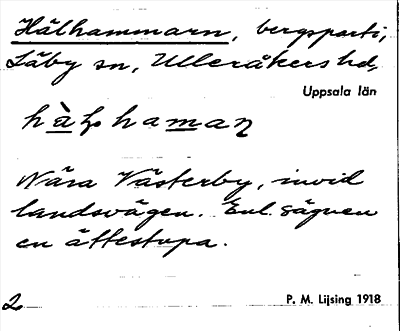 Hälhammarn, bergsparti,
Läby sn, Ulleråkers hd,
Uppsala län
Nära Västerby, invid
landsvägen. Enl. sägnen
en ättestupa.
2
P. M. Lijsing 1918